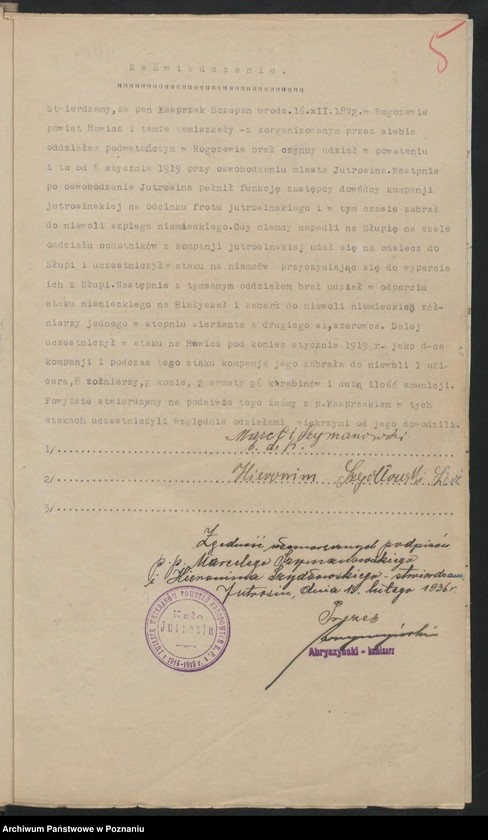 5
Zaświadczenie.
Stwierdzamy, że pan Kasprzak Szczepan urodz. 16.XII.1879. w Rogożewie
powiat Rawicz i tamże zamieszkały -z zorganizowanym przez siebie
oddziałem powstańczym w Rogożewie brał czynny udział w powstaniu
i to od 6 stycznia 1919 przy oswobodzeniu miasta Jutrosina. Nastpnie
po oswobodzeniu Jutrosina pełnił funkcję zastępcy dowódcy kompanji
jutrosińskiej na odcinku frotu jutrosińskiego i w tym czasie zabrał
do niewoli szpiega niemieckiego. Gdy niemcy napadli na Słupię na czele
oddziału ochotników z kompanji jutrosińskiej udał się na odsiecz do
Słupi i uczestniczył w ataku na niemców przyczyniając się do wyparcia
ich z Słupi. Następnie z tymsamym oddziałem brał udział w odparciu
ataku niemieckiego na Białykał i zabarł do niewoli niemieckich żół-
nierzy jednego w stopniu sierżanta a drugiego st, szerowca. Dalej
uczestniczył w ataku na Rawicz pod koniec stycznia 1919 r. jako d-ca
kompanji i podczas tego ataku kompanja jego zabrała do niewoli 1 ofi-
cera, 8 żołnierzy, 2 konie, 2 armaty 26 karabinów i dużą ilość amunicji.
Powyższe stwierdzamy na podstawie tego żeśmy z p. Kasprzakiem w tych
atakach uczestniczyli względnie odziałemi większymi od jego dowodzili.
1/ Marceli Szymanowski
2/ Hieronim Szydłowski
3/
Zgodność własnoręcznych podpisów
p. p. Marcelego Szymanowskiego
i Hieronima Szydłowskiego - stwierdzam
Jutrosin, dnia 19. lutego 1936 r.
Prezes
ZWIĄZEK WETERANÓW POWSTAŃ NARODOWYCH R.P. 1914-1919
Koło
Jutrosin
Abryszyński - komisarz
Archiwum Państwowe w Poznaniu